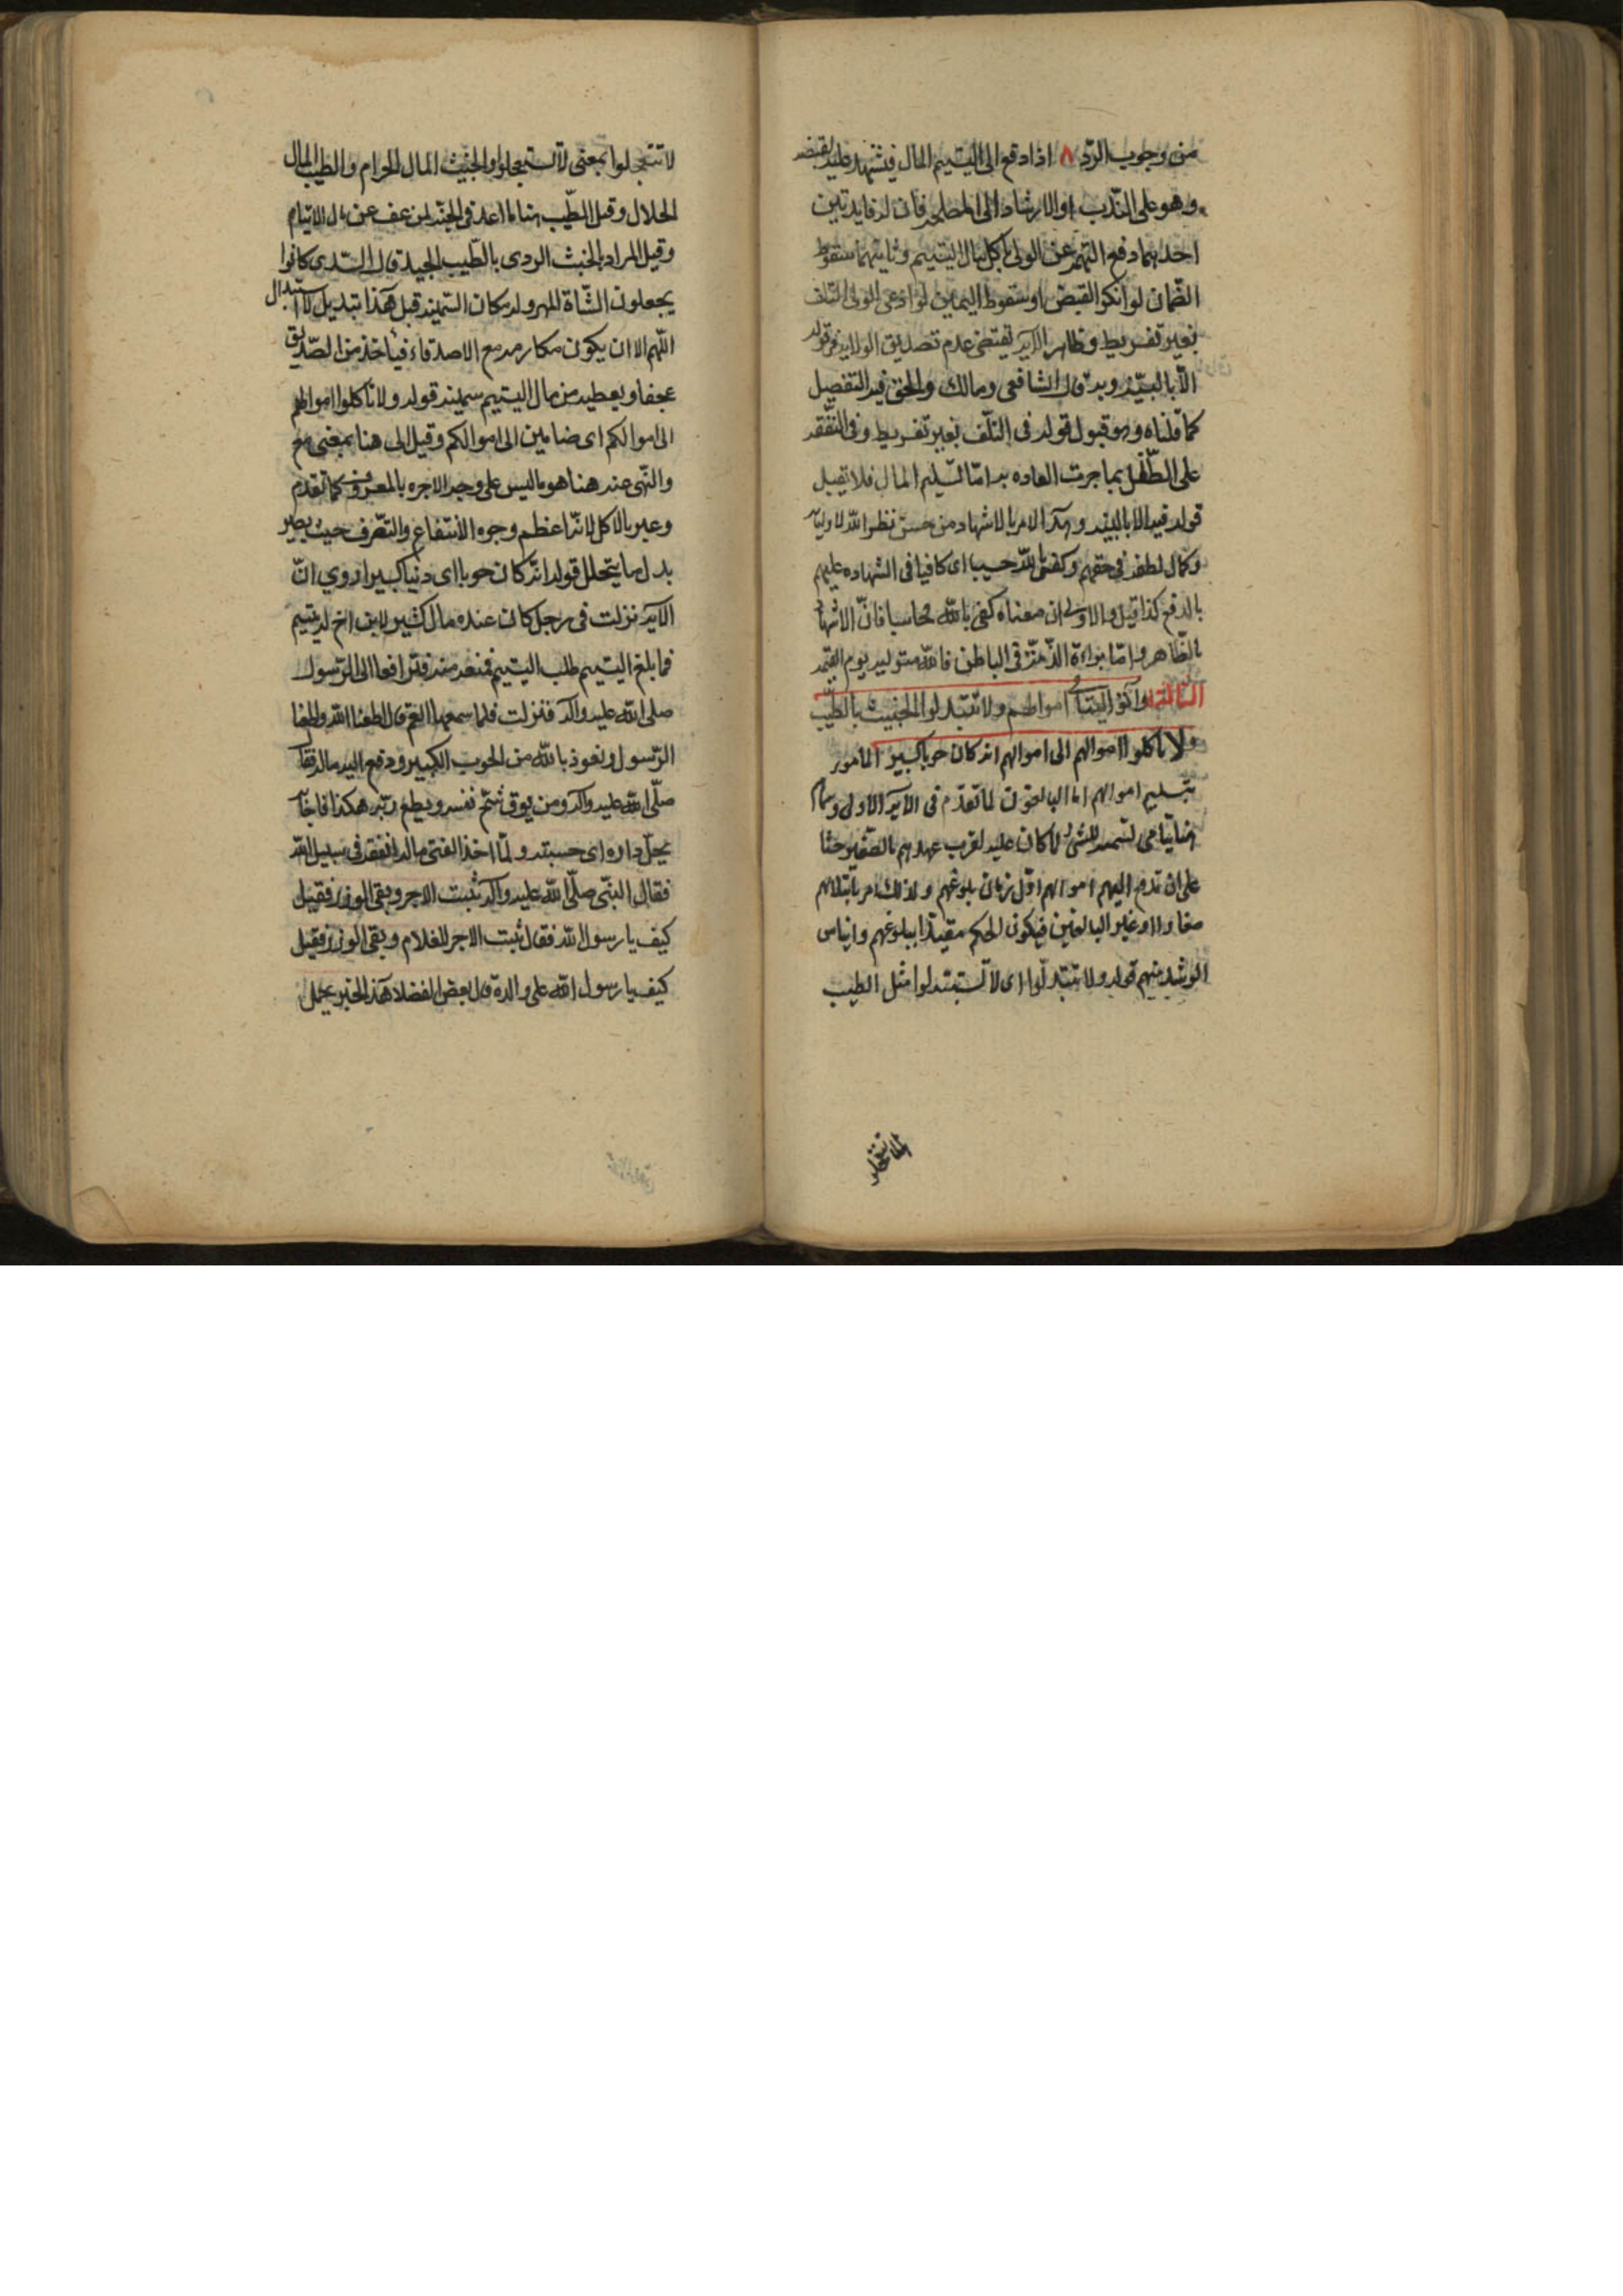 من وجوب الرد ٨ اذا دفع الى اليتيم المال فيشهد عليه لقبضه
وهو على الندب او الارشاد الى المصلحه فان له فايدتين
احدىهما دفع التهمه عن الولى باكل مال اليتيم وثانيتهما سقوط
الضمان لو انكر القبض او سقوط اليمان لو ادعى الولى التلف
بغير تفريط وظاهر الآيه يقتضى عدم تصديق الولى فى قوله
الا بالبينه وبه قال الشافعى ومالك والحق فيه التفصيل
كما قلناه وهو قبول قوله فى التلف بغير تفريط وفى النفقه
على الطفل بما جرت العاده به امّا تسليم المال فلا تقبل
قوله فيه الا بالبينه وهذا الامر بالاشهاد من حسن نظر الله لاوليآئه
وكمال لطفه فى حقهم وكفى بالله حسيبا اى كافيا فى الشهاده عليهم
بالدفع كذا قيل والاولى ان معناه كفى بالله محاسبا فانّ الاشهاد
بالظاهر وامّا براءة الذمّة فى الباطن فالله متوليه يوم القيمه
الثالثة وآتوا اليتامى اموالهم ولا تتبدلوا الخبيث بالطيب
ولا تاكلوا اموالهم الى اموالكم انه كان حوبا كبيرا المامور
بتسليم اموالهم اما البالغون لما تقدم فى الآيه الاولى وسماهم
هنا يتامى تسميه للشئ لما كان عليه لقرب عهدهم بالصغير حثا
على ان تدفع اليهم اموالهم اول زمان بلوغهم ولذلك امر بابتلائهم
صغارا او غير البالغين فيكون الحكم مقيدا ببلوغهم وايناس
الرشد منهم قوله ولا تتبدلوا اى لا تستبدلوا مثل
لا تتعجلوا
لا تتعجلوا بمعنى لا تستعجلوا والخبيث المال الحرام والطيب المال
الحلال وقيل الطيب هنا ما اعد فى الجنه لمن عف عن مال الايتام
وقيل المراد بالخبث الردى بالطيب الجيد قال السدى كانوا
يجعلون الشاة المهزوله مكان السمينه قيل هذا تبديل لا استبدال
اللهم الا ان يكون مكارمه مع الاصدقاء فياخذ من الصديق
عجفا ويعطيه من مال اليتيم سمينه قوله ولا تاكلوا اموالهم
الى اموالكم اى ضامين الى اموالكم وقيل الى هنا بمعنى مع
والنهى عنه هنا هو ما ليس على وجه الاجره بالمعروف كما تقدم
وعبر بالاكل لانه اعظم وجوه الانتفاع والتصرف حيث يصير
بدل ما يتحلل قوله انه كان حوبا اى ذنبا كبيرا روي انّ
الآيه نزلت فى رجل كان عنده مال كثير لابن اخ له يتيم
فما بلغ اليتيم طلب اليتيم فمنعه منه فترافعا الى الرسول
صلى الله عليه وآله فنزلت فلما سمعها العم قال اطعنا الله واطعنا
الرسول ونعوذ بالله من الحوب الكبير ودفع اليه ماله فقال
صلّى الله عليه وآله ومن يوق شح نفسه ويطع ربه هكذا فانه
يحلّ داره اى جنته ولمّا اخذ الفتى ماله انفقه فى سبيل الله
فقال النبّى صلّى الله عليه وآله ثبت الاجر وبقى الوزر فقيل
كيف يا رسول الله فقال ثبت الاجر للغلام وبقى الوزر فقيل
كيف يا رسول الله على والده قال بعض الفضلا هذا الخبر يحمل